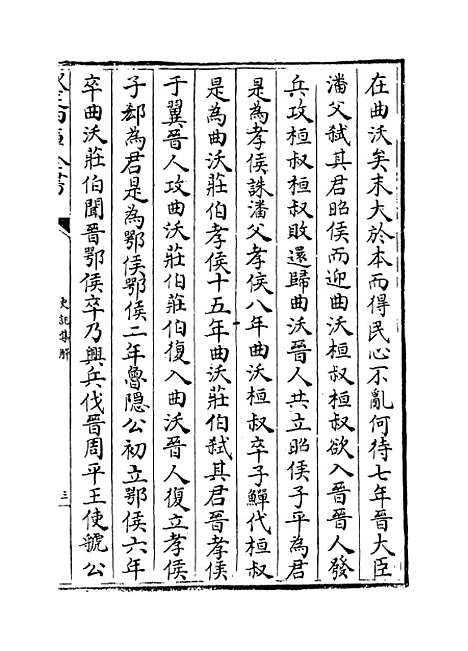 在曲沃矣末大於本而得民心不亂何待七年晉大臣
潘父弑其君昭侯而迎曲沃桓叔桓叔欲入晉晉人發
兵攻桓叔桓叔敗還歸曲沃晉人共立昭侯子平為君
是為孝侯誅潘父孝侯八年曲沃桓叔卒子鱓代桓叔
是為曲沃莊伯孝侯十五年曲沃莊伯弑其君晉孝侯
于翼晉人攻曲沃莊伯莊伯復入曲沃晉人復立孝侯
子郄為君是為鄂侯鄂侯二年魯隱公初立鄂侯六年
卒曲沃莊伯聞晉鄂侯卒乃興兵伐晉周平王使虢公
史記集解
三